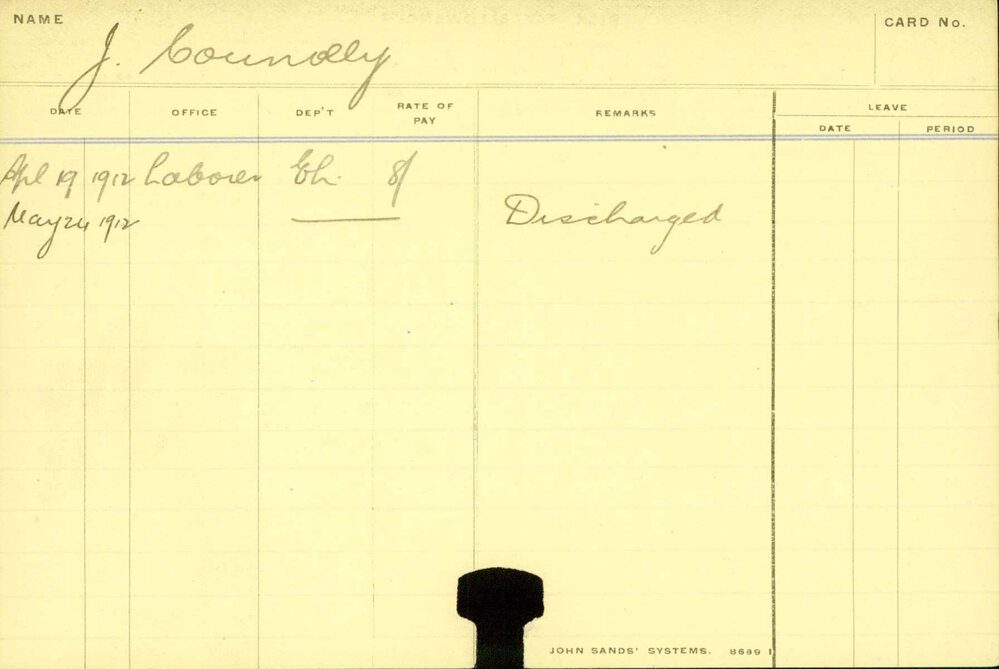 NAME
J. Connolly
CARD No.
DATE OFFICE DEP'T RATE OF PAY REMARKS LEAVE
DATE PERIOD
Apl 19 1912 Laborer Ch. 8/
May 24 1912 Discharged
JOHN SANDS' SYSTEMS. 8689 1